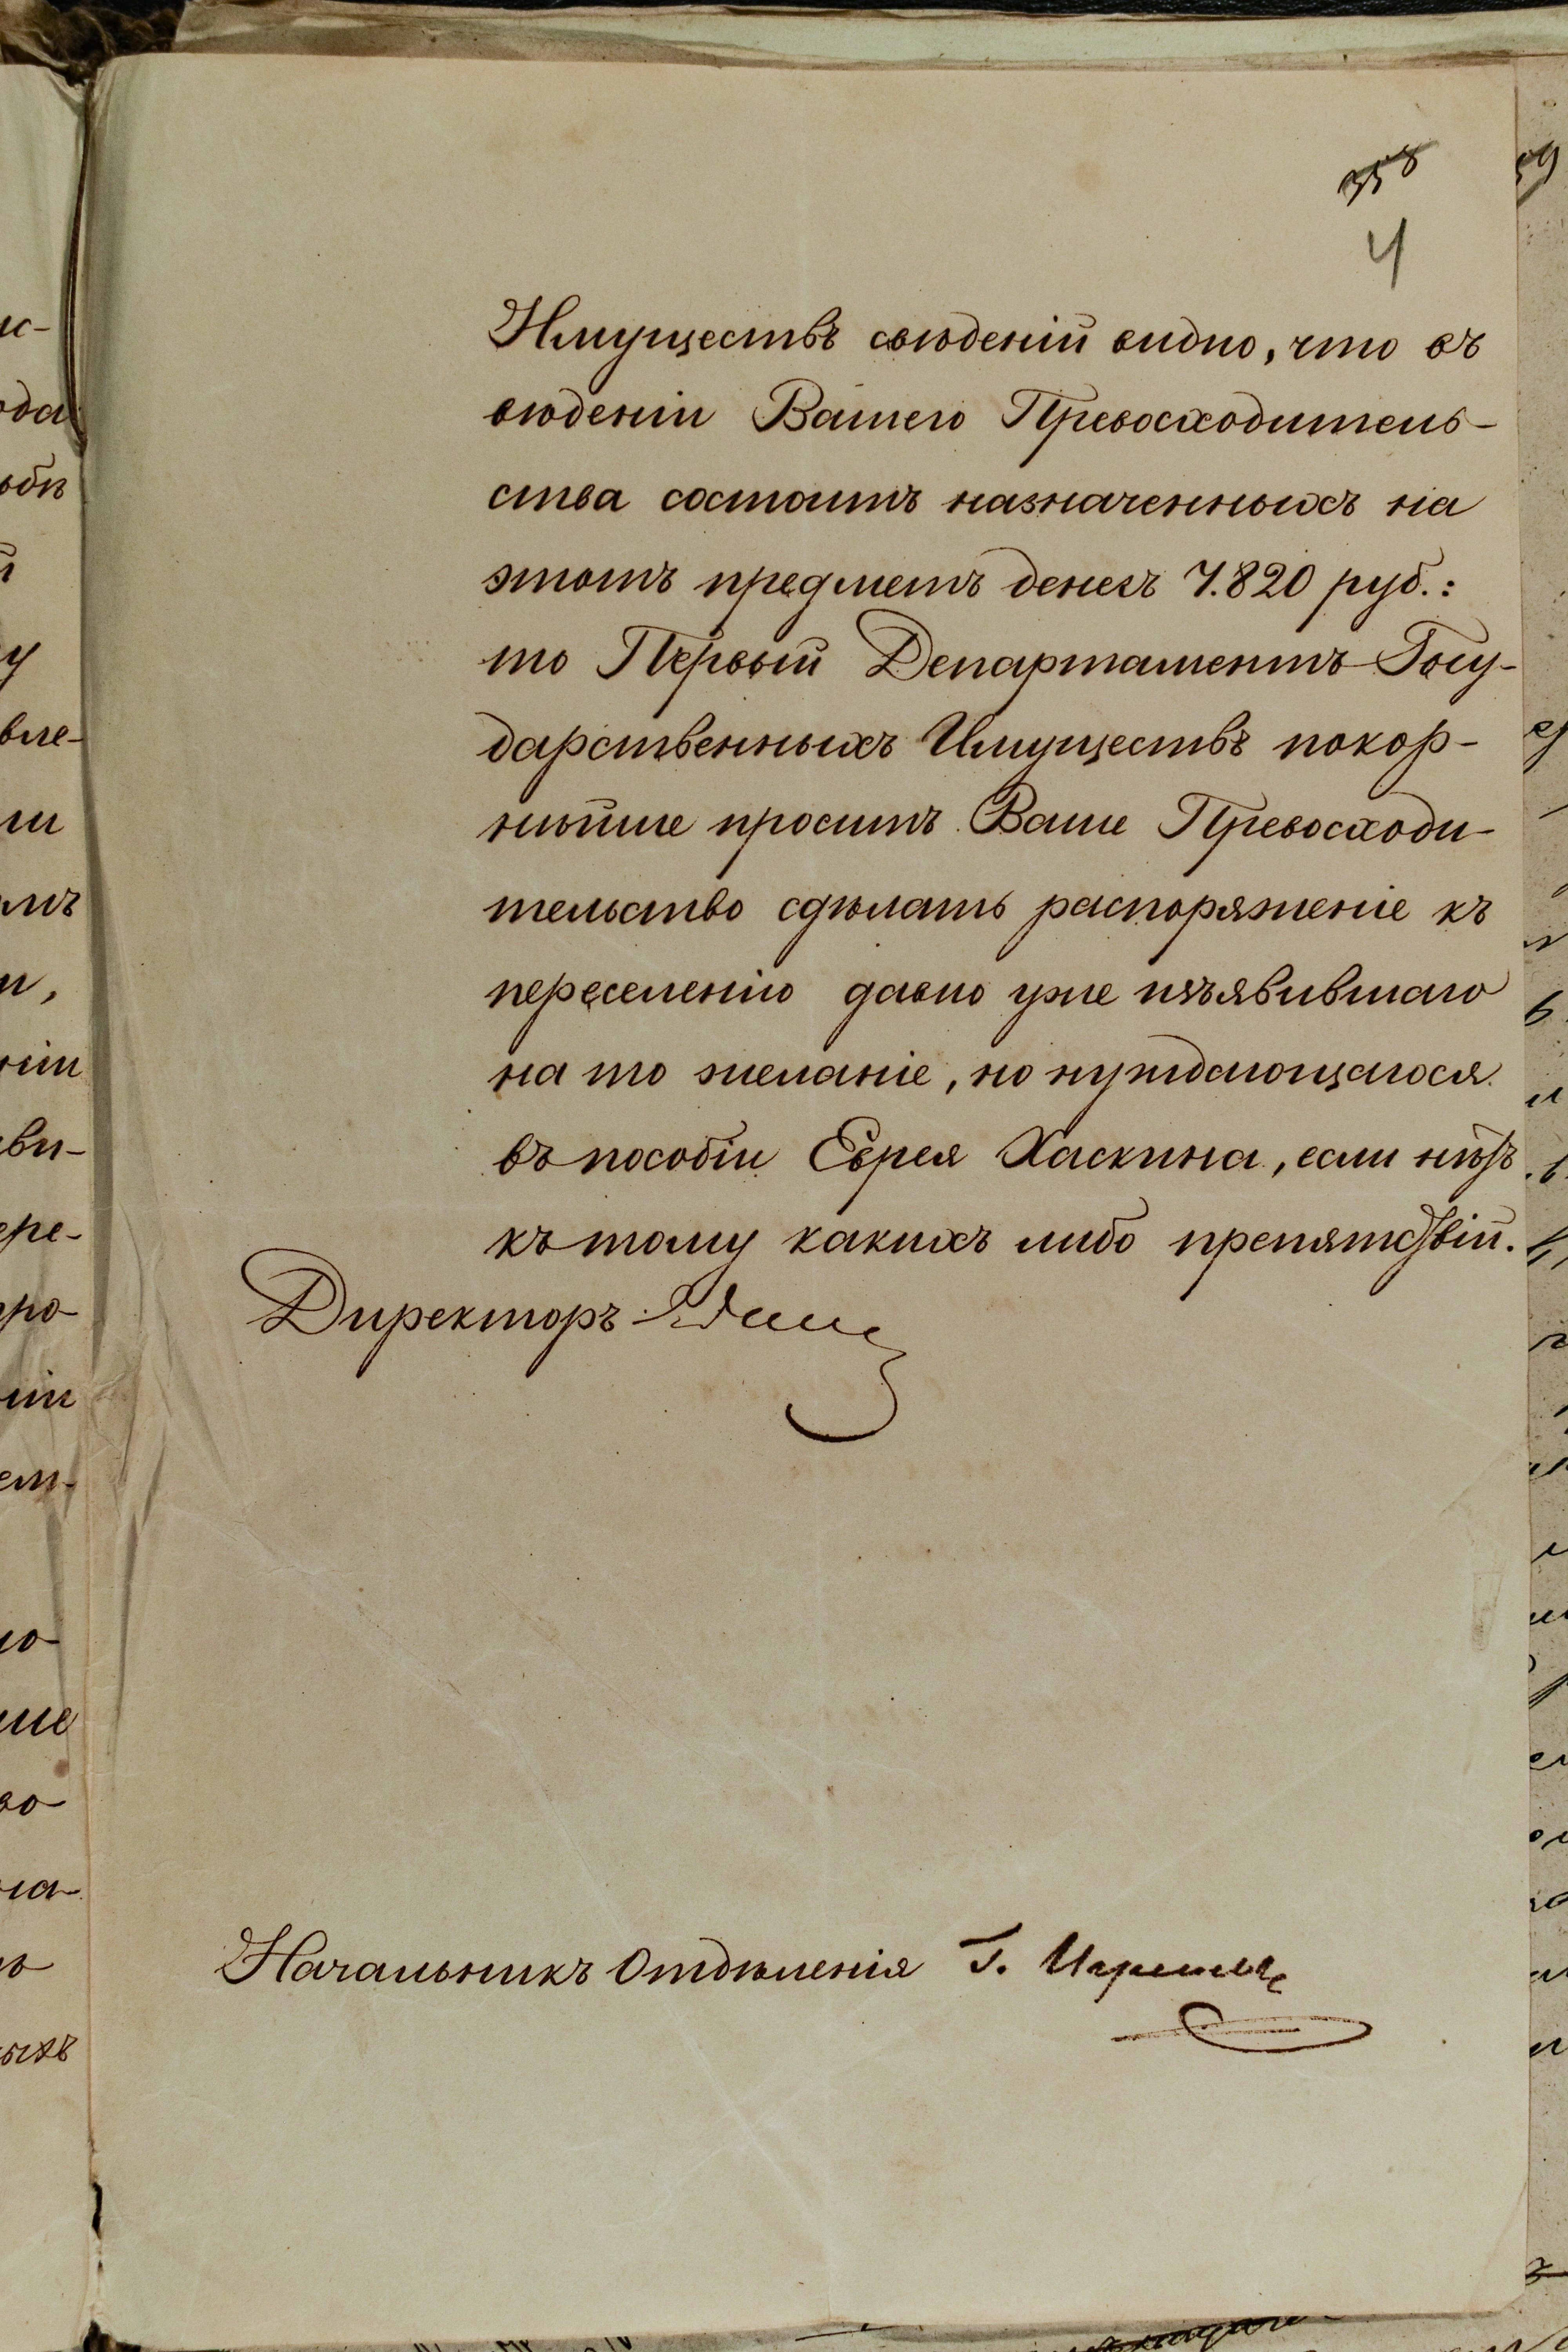 358
4
Имуществъ свѣденій видно, что въ
вѣденіи Вашего Превосходитель-
ства состоитъ назначенныхъ на
этотъ предметъ денегъ 7.820 руб.:
то Первый Департаментъ Госу-
дарственныхъ Имуществъ покор-
нѣйше проситъ Ваше Превосходи-
тельство сдѣлать распоряженіе къ
переселенію давно уже изъявившаго
на то желаніе, но нуждающагося
въ пособіи Еврея Хаскина, если нѣтъ
къ тому какихъ либо препятствій.
Директоръ
Начальникъ Отдѣленія Г.